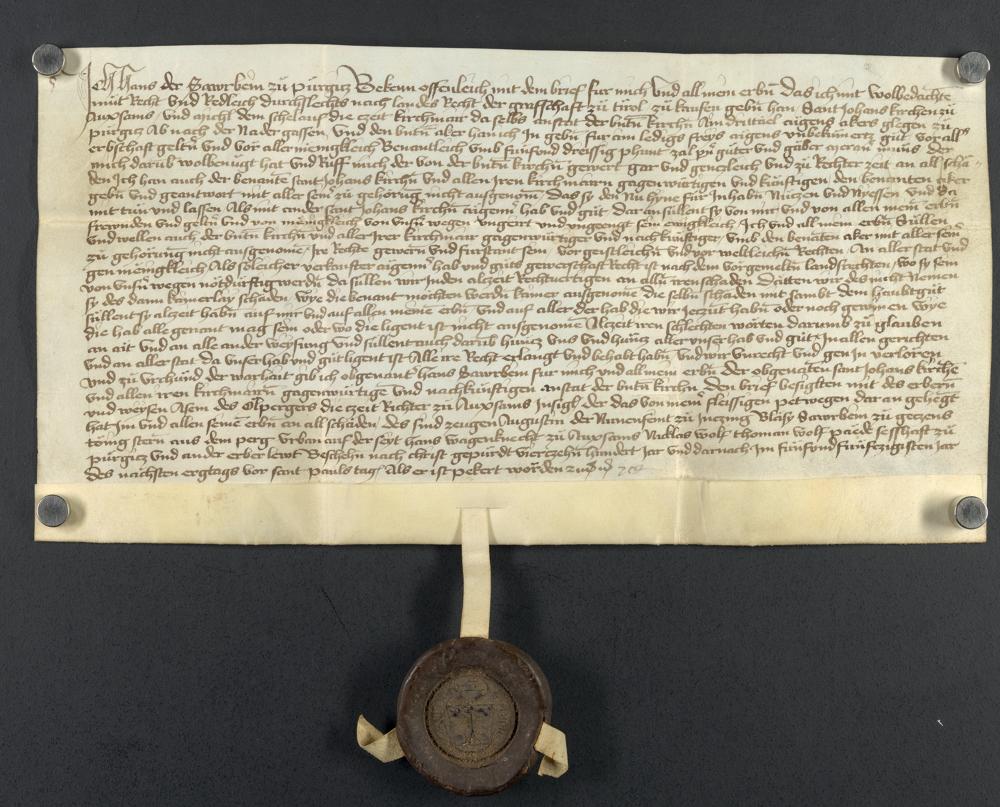 Ich Hans der Sawrbein zů pürgitz Bekenn offenleich mit dem brief für mich Und all mein erbñ Das ich mit wolbedachtē
můt Recht Und Redleich Durchslechts nach landes Recht der graffschaft zů tirol zů kaufen gebñ han Sant Johans kirchen zů
Auxsams Und auch dem schel auf die czeit kirchmair da selbs anstat der bntñ kirchñ Ain drittail aigens akers glegen zů
pürgitz Ab nach der Nader gassen, Und den bntñ aker han ich In gebñ für ain ledigs freys aigens unbekümertz gůt vor alls
erbschaft geltñ Und vor aller mēnigkleich Benantleich Umb fünfond dreissig phunt zal pñ gůter Und gäber meranē münss der
mich darüb wolbenügt hat Und Rüff mich der von der bntñ kirchñ gewert gar Und gentzleich Und zů Rechter zeit an all schä
den Ich han auch der benantē sant Johans kirchñ Und allen Iren kirchmairn gagenwürtigen Und künftigen den benanten aker
gebñ Und geantwort mit aller seinē zů gehörūg nicht ausgenomē Das sy den Nu hyne für Inhabñ Nutzn Und Nyessen Und da
mit tůn Und lassen Als mit ander sant Johans kirchñ aigenn hab Und gůt dar an süllent sy von mir Und von allen mein erbñ
freunden Und geltñ Und vor mēnigkleich von Unsñ wegen ungeirt Und ungeengt sein ewigkleich Ich Und all mein erbñ Süllen
Und wellen auch der bntñ kirchñ Und aller Irer kirchmair gagenwürtiger Und nachkünftiger Umb den benātē aker mit aller seinē
zů gehörūg nicht ausgenomē Ire Rechte gewern Und fürstant sein vor geistleichñ Und vor weltleichñ Rechten An aller stat Und
gen mēnigkleich Als soleicher verkaufter aigenn hab Und gůts gewerschaft Recht ist nach dem vorgemeltñ landsrechten wo sy sein
von Unsñ wegen notdürftig werdñ da süllen wir Inden alczeit Rechtvertigen an allñ iren schaden Dätten wir des nicht Nemen
sy des dann kainerlay schaden wye die benant möchten werdñ kainer ausgenomē Die selbñ schaden mit sambt dem haubtgůt
süllent sy alczeit habñ auf mir Und auf allen meinē erbñ Und auf aller der hab die wir Jeczut habñ oder noch gewynen wye
die hab alle genant mag sein oder wo die ligent ist nicht ausgenomē Alczeit iren slechten worten darumb zů glauben
an ait Und an alle ander weysung Und süllent auch darüb hintz Uns Und hintz aller Unser hab Und gůt In allen gerichten
Und an aller stat da Unser hab Und gůt ligent ist Alle ire Recht erlangt Und behabt habñ Und wir Unrecht Und gen In verloren
Und zů Urchünd der warhait gib ich obgenant hans Sawrbein für mich Und all mein erbñ der obgenātē sant Johans kirchē
Und allen iren kirchmairñ gagenwürtigē Und nachkünftigen anstat der bntñ kirchñ Den brief besigltñ mit des erbern
Und weysen Asem des Olpergers die czeit Richter zů Auxsams Insigl der das von meinē fleissigen petwegen dar an gehēgt
hat Im Und allen seinē erbñ an all schädñ des sind zeugen Augustin der Nunensent zů Inczing Bläsy Sawrbein zů geczens
stern aus dem perg Urban auf der seyt hans wagenknecht zů Auxsams Nicklas wolf thoman wolf paide sesshaft zů
pürgitz Und ander erber lewt Beschehñ nach christ gepürdt vierczehñ hundert Jar Und darnach Im fünfundfünfczigisten Jar
des nächsten ergtags vor sant pauls tag Als er ist pekert worden